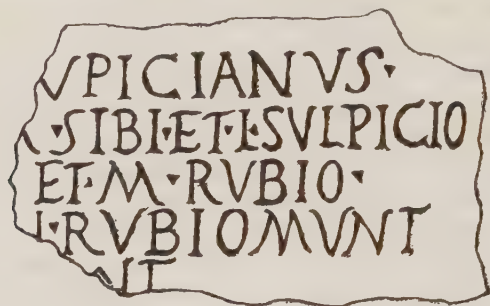 VPICIANVS·
·SIBI·ET·L·SVLPICIO
ET·M·RVBIO·
·RVBIOMVNT
IT